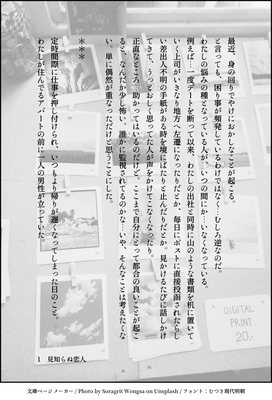 最近、身の回りでやけにおかしなことが起こる。
と言っても、困り事が頻発しているわけではなく、むしろ逆なのだ。
わたしの悩みの種となっている人が、いつの間にか…いなくなっている。
例えば…一度デートを断って以来、わたしの出社と同時に山のような書類を机に置いて
いく上司がいきなり地方へ左遷になったりだとか、毎日にポストに直接投函されたらし
い差出人不明の手紙がある時を境にぱたりと止んだりだとか。見かけるたびに話しかけ
てきて、うっとおしく思ってた人が声をかけてこなくなったり。
正直なところ、助かってはいるのだけど、ここまで自分にとって都合の良いことが起こ
ると、なんだか少し怖い。誰かに監視されてるのかな…いや、そんなことは考えたくな
い。単に偶然が重なっただけだと思うことにした。
＊＊＊
定時間際に仕事を押し付けられ、いつもより帰りが遅くなってしまった日のこと。
わたしが住んでるアパートの前に一人の男性が立っていた。
1 見知らぬ恋人
DIGITAL
PRINT
20.-
文庫ページメーカー / Photo by Soragrit Wongsa on Unsplash / フォント：むつき現代明朝